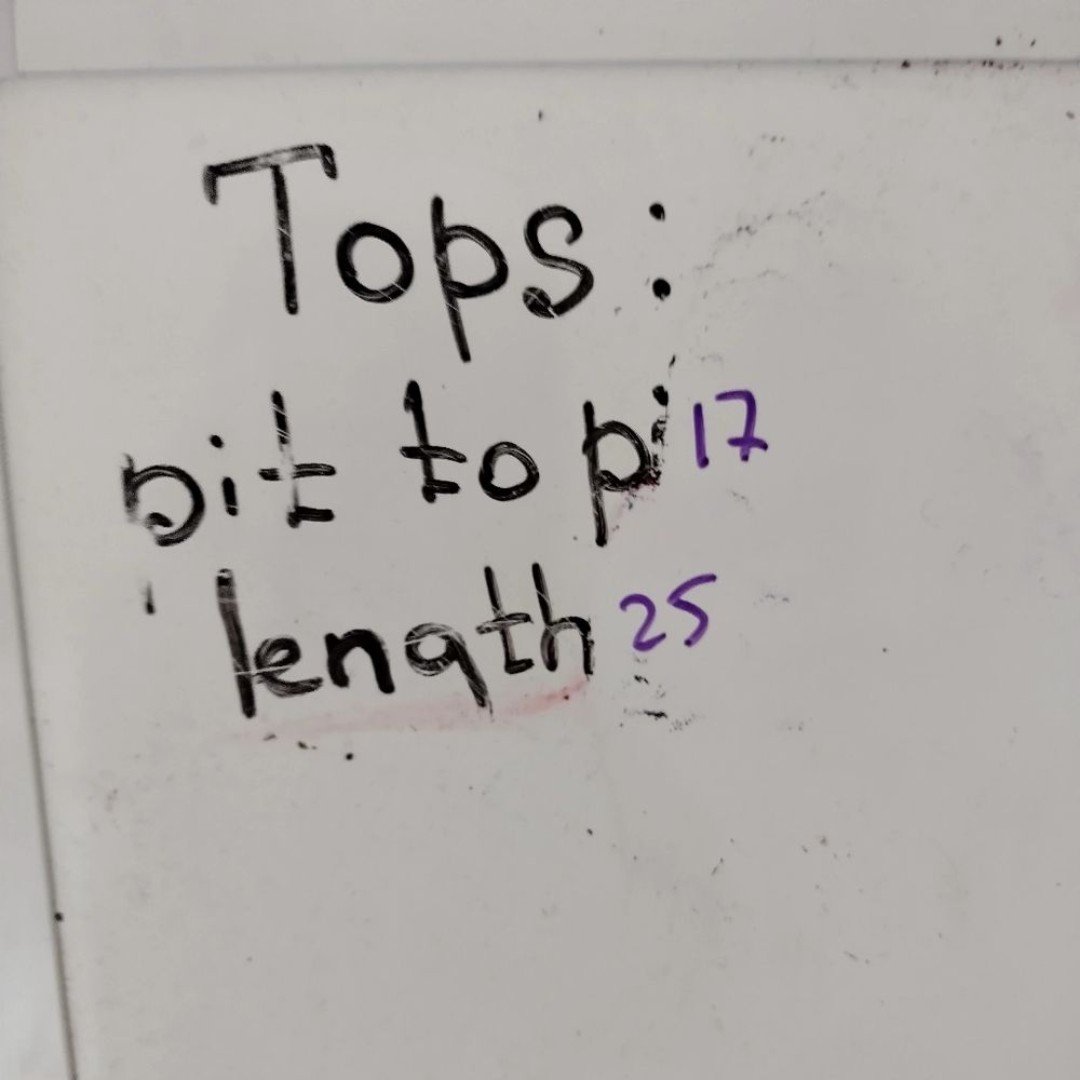 Tops:
pit to pi 17
length 25